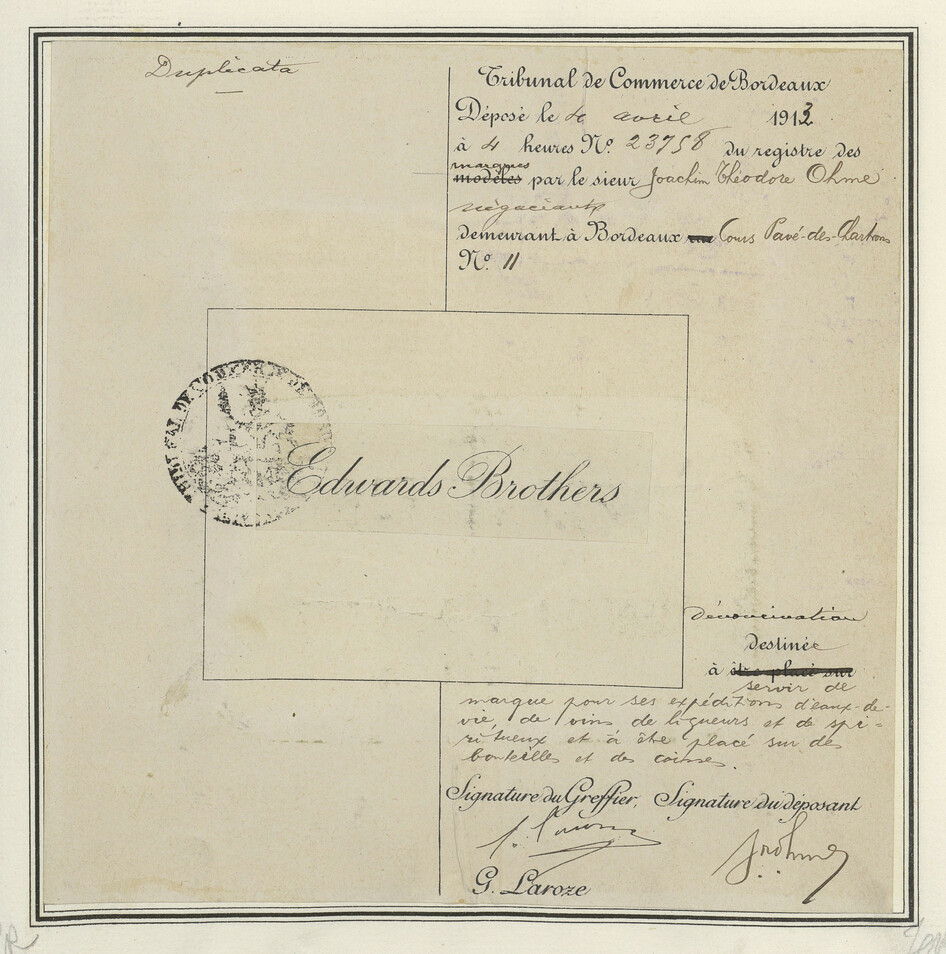 Duplicata
Tribunal de Commerce de Bordeaux
Déposé le 4 avril 1913
à 4 heures N.º 23758 du registre des
marques
modèles par le sieur Joachim Théodore Ohme
négociant
demeurant à Bordeaux rue Cours Pavé-des-Chartrons
N.º 11
TRIBUNAL DE COMMERCE DE
Edwards Brothers
dénomination
destinée
à être placé sur
servir de
marque pour ses expéditions d'eaux-de-
vie, de vins de liqueurs et de spi=
ritueux et à être placé sur des
bouteilles et des caisses.
Signature du Greffier, Signature du déposant
G. Laroze